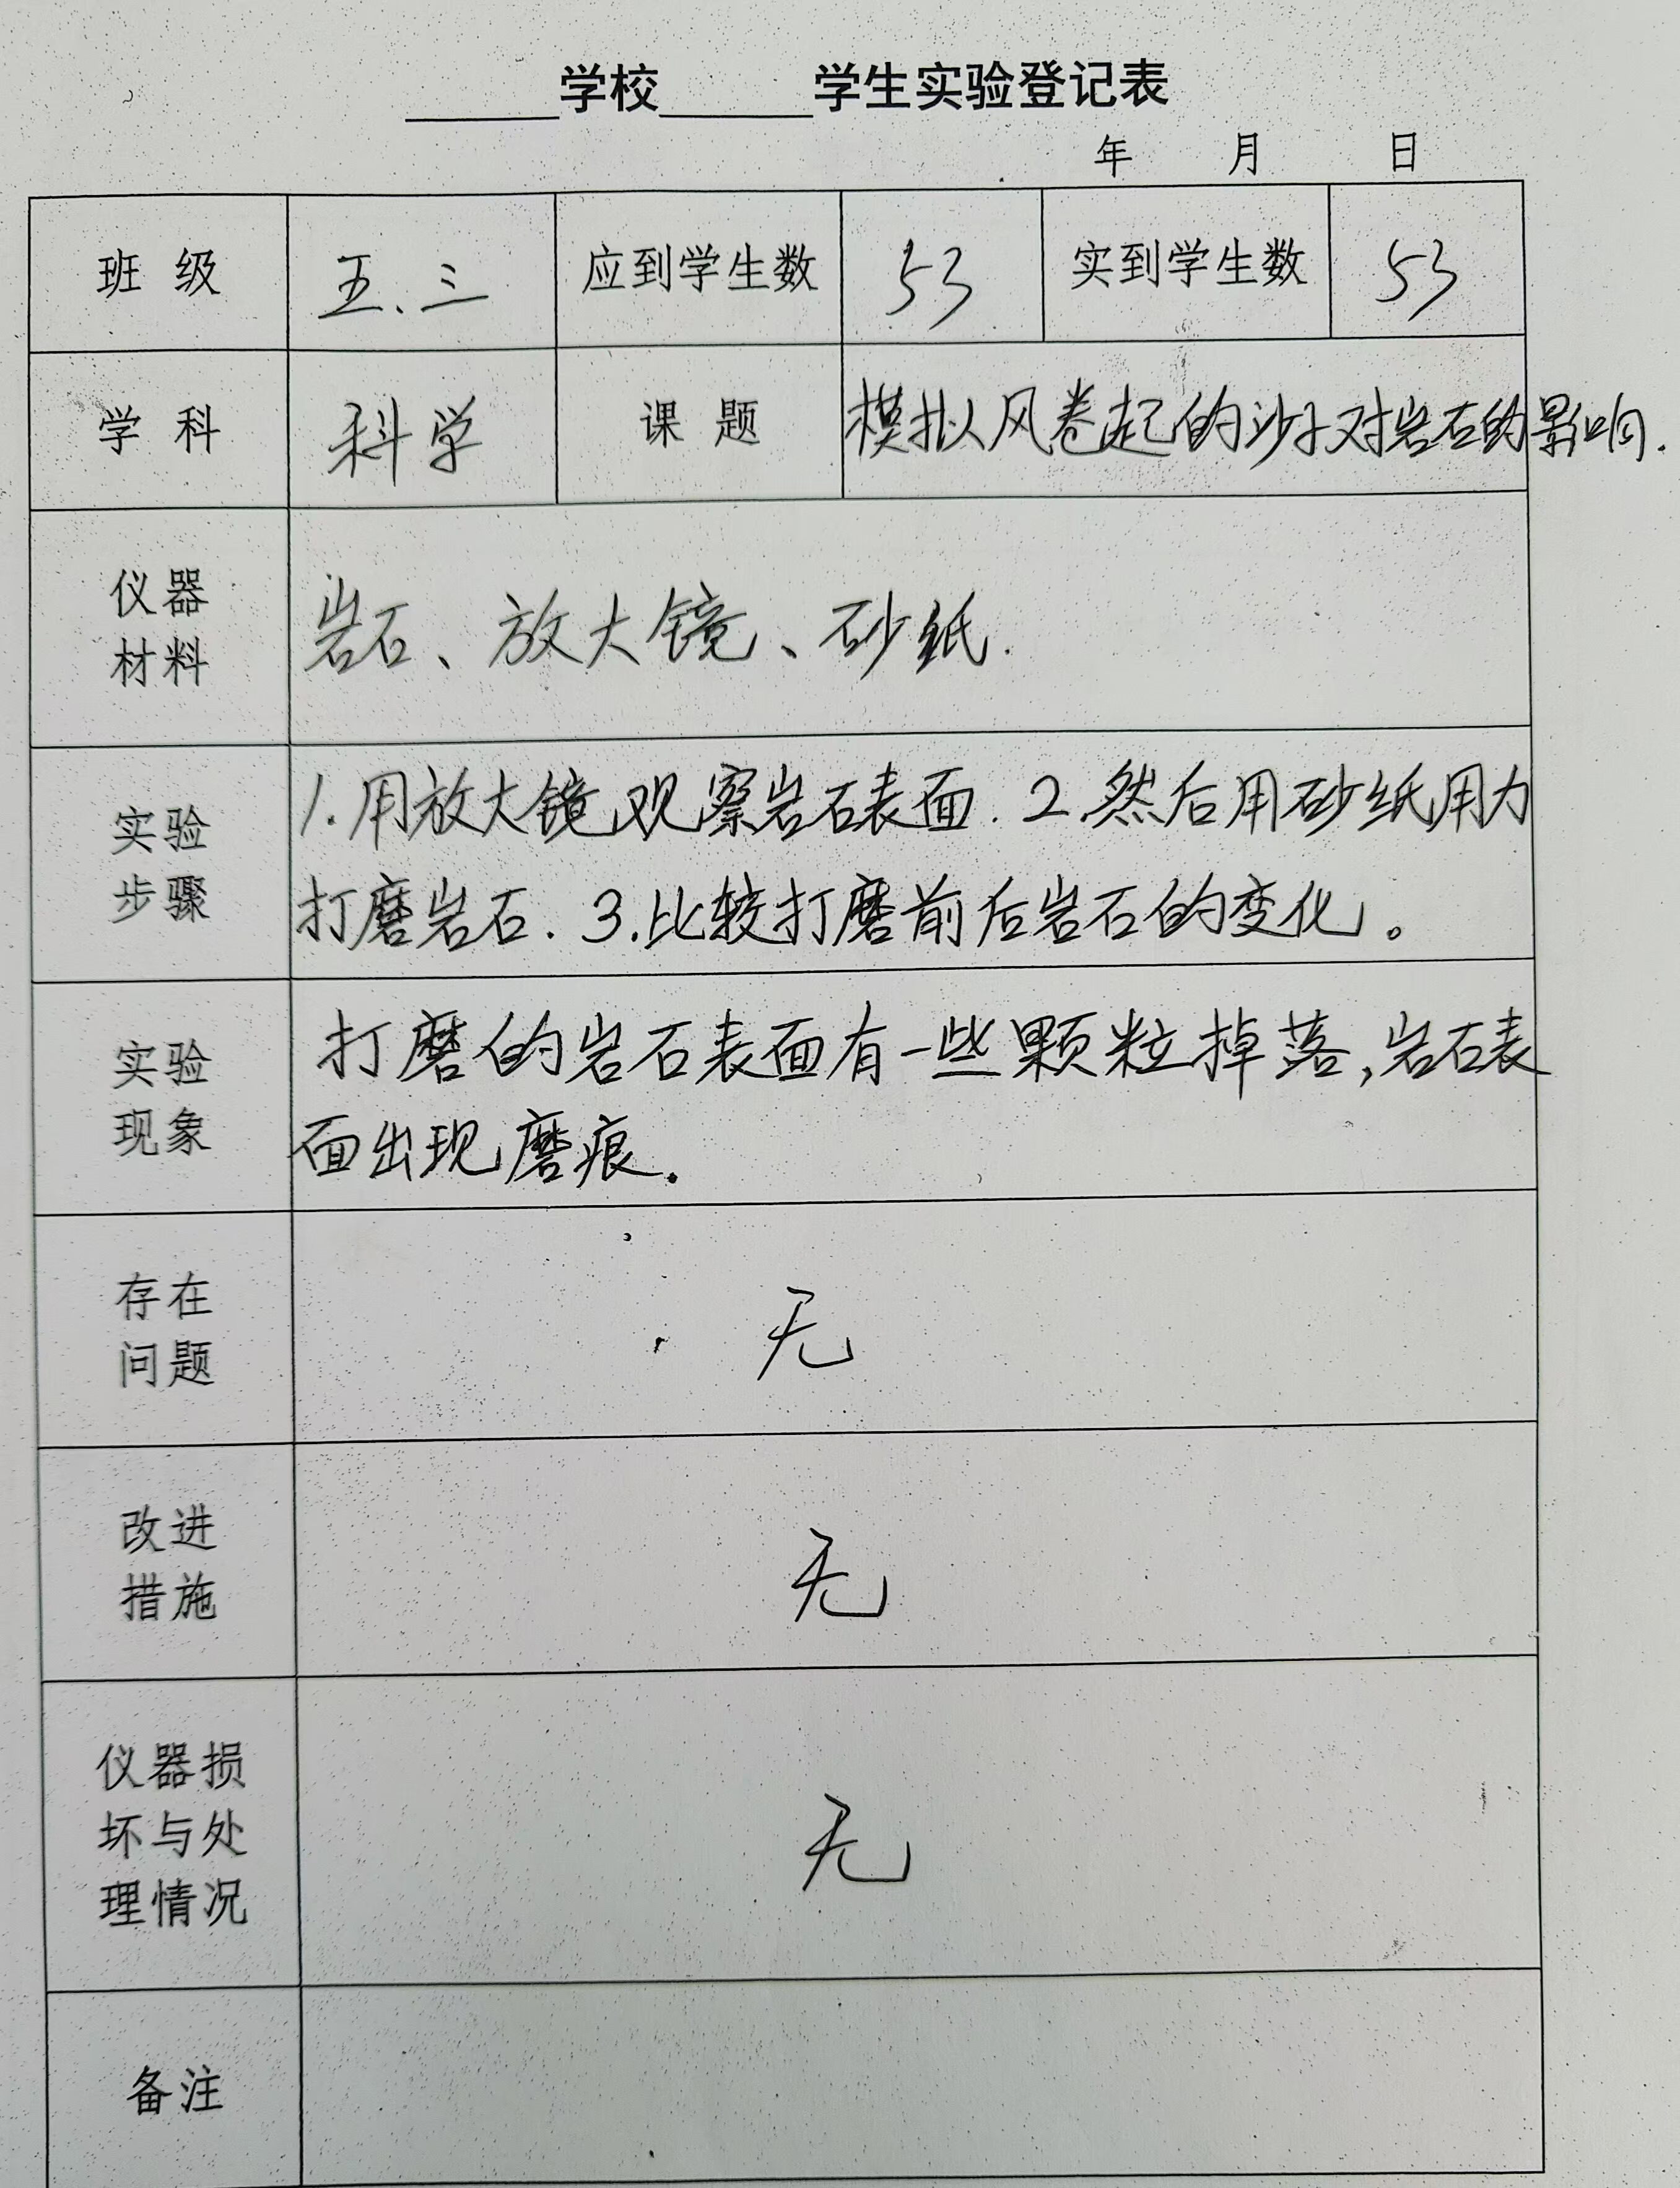 ______学校______学生实验登记表
年 月 日
班 级 五.三 应到学生数 53 实到学生数 53
学 科 科学 课 题 模拟风卷起的沙子对岩石的影响.
仪器
材料
岩石、放大镜、砂纸.
实验
步骤
1.用放大镜观察岩石表面.2.然后用砂纸用力
打磨岩石.3.比较打磨前后岩石的变化。
实验
现象
打磨的岩石表面有一些颗粒掉落,岩石表
面出现磨痕.
存在
问题
无
改进
措施
无
仪器损
坏与处
理情况
无
备注